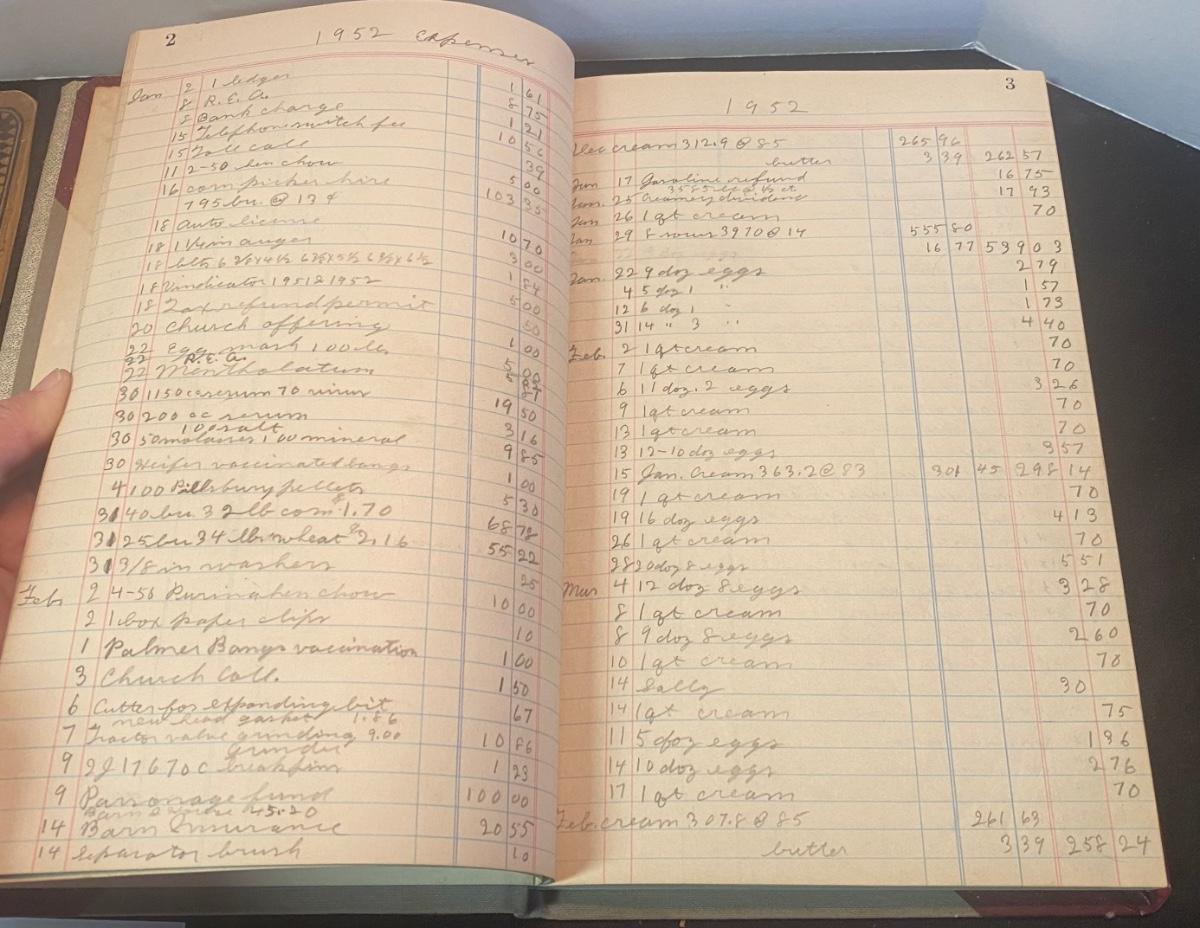 2
1952 expenses
Jan 2 1 ledger 1 61
8 R.E.A. 8 75
8 Bank charge 1 21
15 Telephone switch fee 10 56
15 Toll call 39
11 2-50 hen chow 5 00
16 corn picker hire
795 bu. @ 13¢ 103 35
18 auto license 10 70
18 1 in auger 3 00
18 blts 1 84
18 Vindicator 1951 & 1952 5 00
18 Tax refund permit 50
20 Church offering 1 00
22 Egg mash 100 lbs 5 00
22 R.E.A.
22 Mentholatum
30 1150 cc serum 70 virus 19 50
30 200 cc serum 3 16
100 salt
30 50 molasses 100 mineral 9 85
30 Heifer vaccinated bangs 1 00
4 100 Pillsbury pellets 5 30
31 40 bu 32 lb corn 1.70 68 78
31 25 bu 34 lbs wheat 2.16 55 22
31 3/8 in washers 25
Feb 2 4-50 Purina hen chow 10 00
2 1 box paper clips 10
1 Palmer Bangs vaccination 1 00
3 Church Coll. 1 50
6 Cutter for expanding bit 67
new head gasket 1.86
7 Tractor valve grinding 9.00 10 86
grinder
9 2J 17670c break pin 1 23
9 Parsonage fund 100 00
Barn & House 45.20
14 Barn Insurance 20 55
14 Separator brush 10
3
1952
Dec cream 312.9 @ 85 265 96
butter 3 39 262 57
Jan 17 Gasoline refund 16 75
3585 lbs @ 1/2 ct
Jan. 25 Creamery dividend 17 93
Jan 26 1 qt cream 70
Jan 29 8 sows 3970 @ 14 555 80
16 77 539 03
Jan. 22 9 doz eggs 2 79
4 5 doz 1 " 1 57
12 6 doz 1 1 73
31 14 " 3 " 4 40
Feb. 2 1 qt cream 70
7 1 qt cream 70
6 11 doz. 2 eggs 3 26
9 1 qt cream 70
13 1 qt cream 70
13 12-10 doz eggs 3 57
15 Jan. Cream 363.2 @ 83 301 45 298 14
19 1 qt cream 70
19 16 doz eggs 4 13
26 1 qt cream 70
28 20 doz 8 eggs 5 51
Mar 4 12 doz 8 eggs 3 28
8 1 qt cream 70
8 9 doz 8 eggs 2 60
10 1 qt cream 70
14 Sally 30
14 1 qt cream 75
11 5 doz eggs 1 36
14 10 doz eggs 2 76
17 1 qt cream 70
Feb. cream 307.8 @ 85 261 63
butter 3 39 258 24